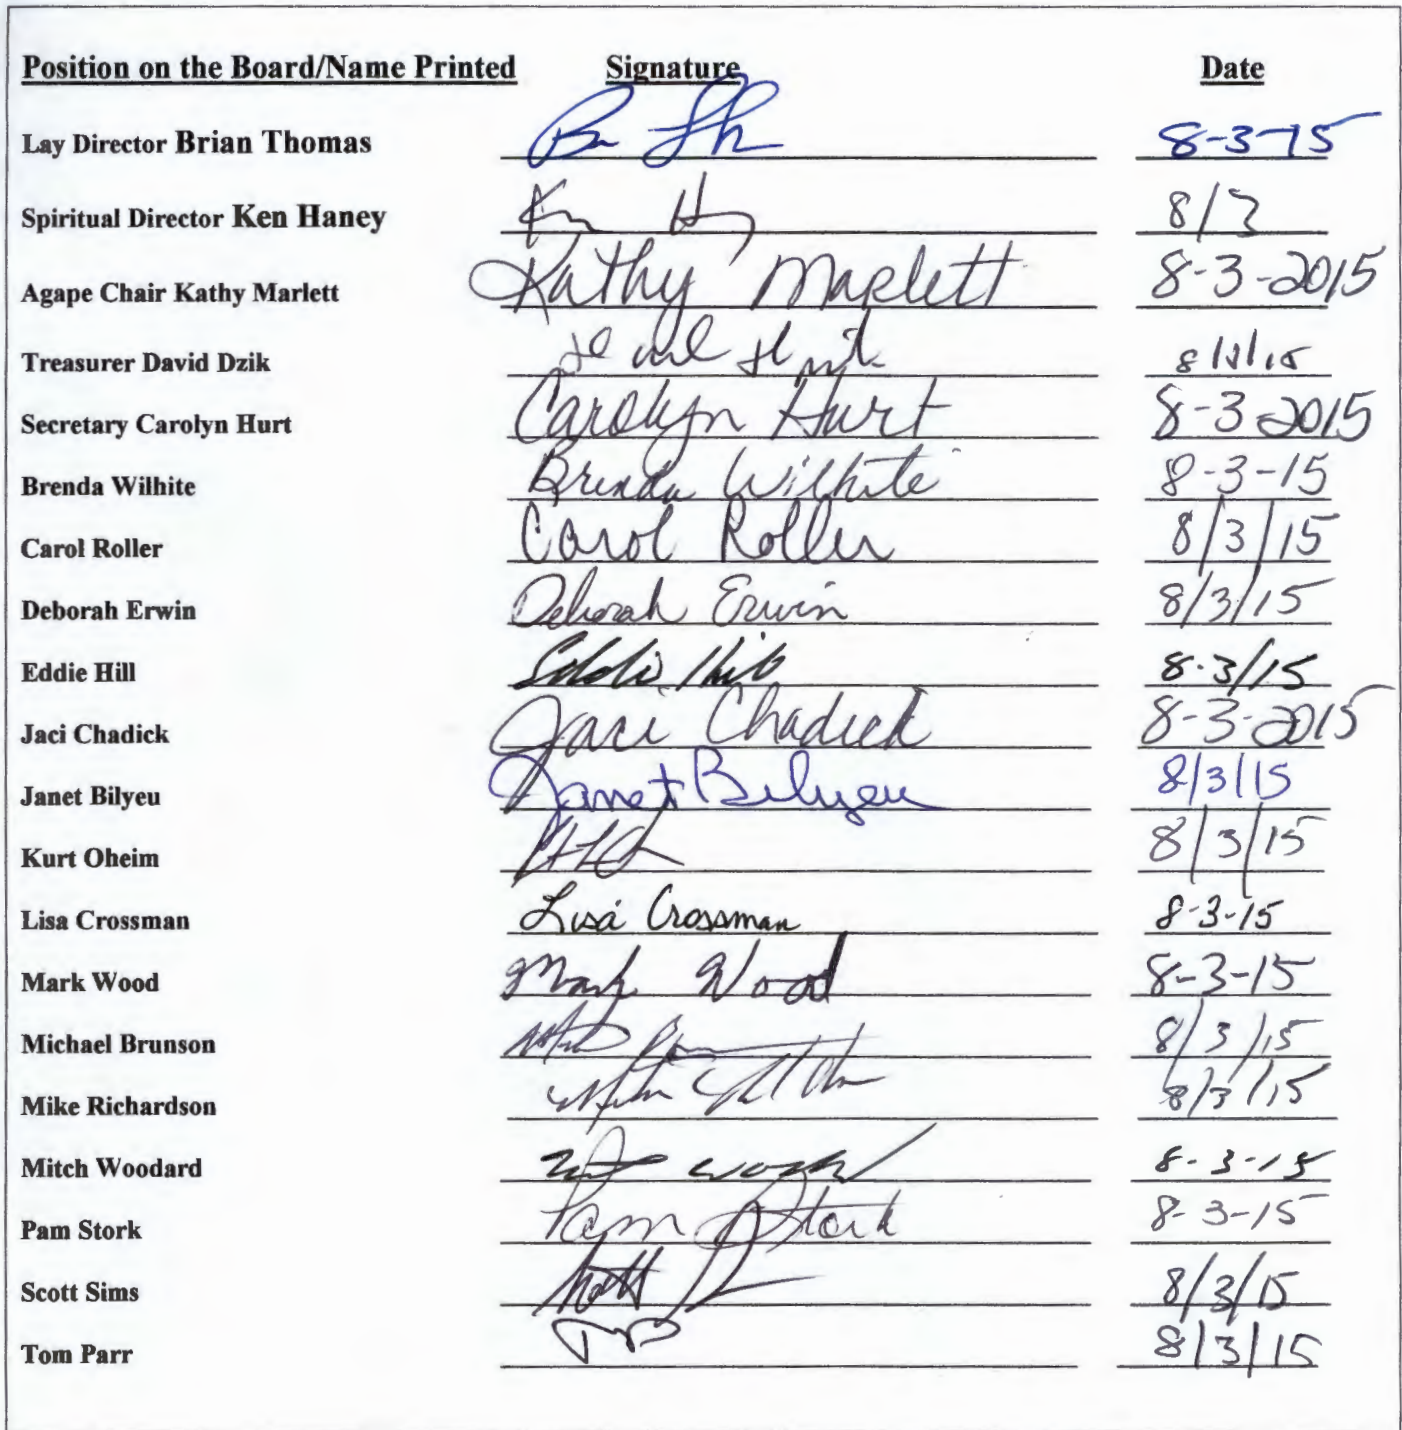 Position on the Board/Name Printed Signature Date
Lay Director Brian Thomas 8-3-15
Spiritual Director Ken Haney 8/3
Agape Chair Kathy Marlett Kathy Marlett 8-3-2015
Treasurer David Dzik
Secretary Carolyn Hurt Carolyn Hurt 8-3-2015
Brenda Wilhite Brenda Wilhite 8-3-15
Carol Roller Carol Roller 8/3/15
Deborah Erwin Deborah Erwin 8/3/15
Eddie Hill Eddie Hill 8-3/15
Jaci Chadick Jaci Chadick 8-3-2015
Janet Bilyeu Janet Bilyeu 8/3/15
Kurt Oheim 8/3/15
Lisa Crossman Lisa Crossman 8-3-15
Mark Wood Mark Wood 8-3-15
Michael Brunson 8/3/15
Mike Richardson 8/3/15
Mitch Woodard 8-3-15
Pam Stork Pam Stork 8-3-15
Scott Sims Scott 8/3/15
Tom Parr TP 8/3/15